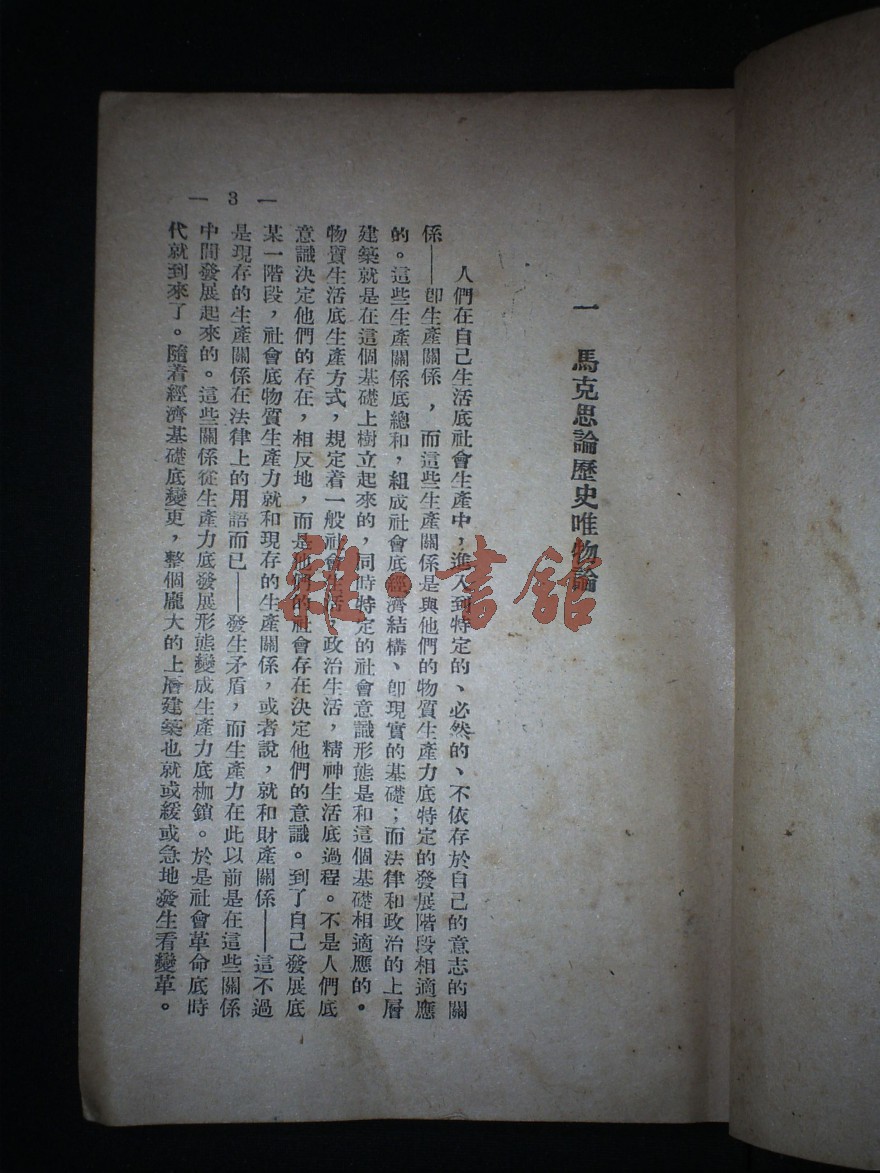 一　馬克思論歷史唯物論
人們在自己生活底社會生產中，進入到特定的、必然的、不依存於自己的意志的關
係——卽生產關係，而這些生產關係是與他們的物質生產力底特定的發展階段相適應
的。這些生產關係底總和，組成社會底經濟結構、卽現實的基礎；而法律和政治的上層
建築就是在這個基礎上樹立起來的，同時特定的社會意識形態是和這個基礎相適應的。
物質生活底生產方式，規定着一般社會生活，政治生活，精神生活底過程。不是人們底
意識決定他們的存在，相反地，而是他們的社會存在決定他們的意識。到了自己發展底
某一階段，社會底物質生產力就和現存的生產關係，或者說，就和財產關係——這不過
是現存的生產關係在法律上的用語而已——發生矛盾，而生產力在此以前是在這些關係
中間發展起來的。這些關係從生產力底發展形態變成生產力底枷鎖。於是社會革命底時
代就到來了。隨着經濟基礎底變更，整個龐大的上層建築也就或緩或急地發生看變革。
— 3 —
雜·書館